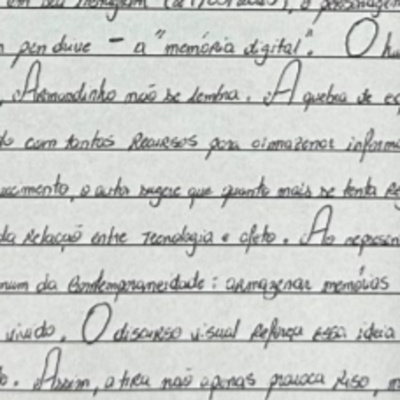 pen drive - a "memória digital". O hu
, Armandinho não se lembra. A quebra de ex
do com tantos recursos para armazenar inform
uecimento, o autor sugere que quanto mais se tenta Re
da Relação entre Tecnologia e afeto. Ao represen
mum da Contemporaneidade: armazenar memórias
vivido. O discurso visual Reforça essa ideia
o. Assim, a tira não apenas provoca Riso, m